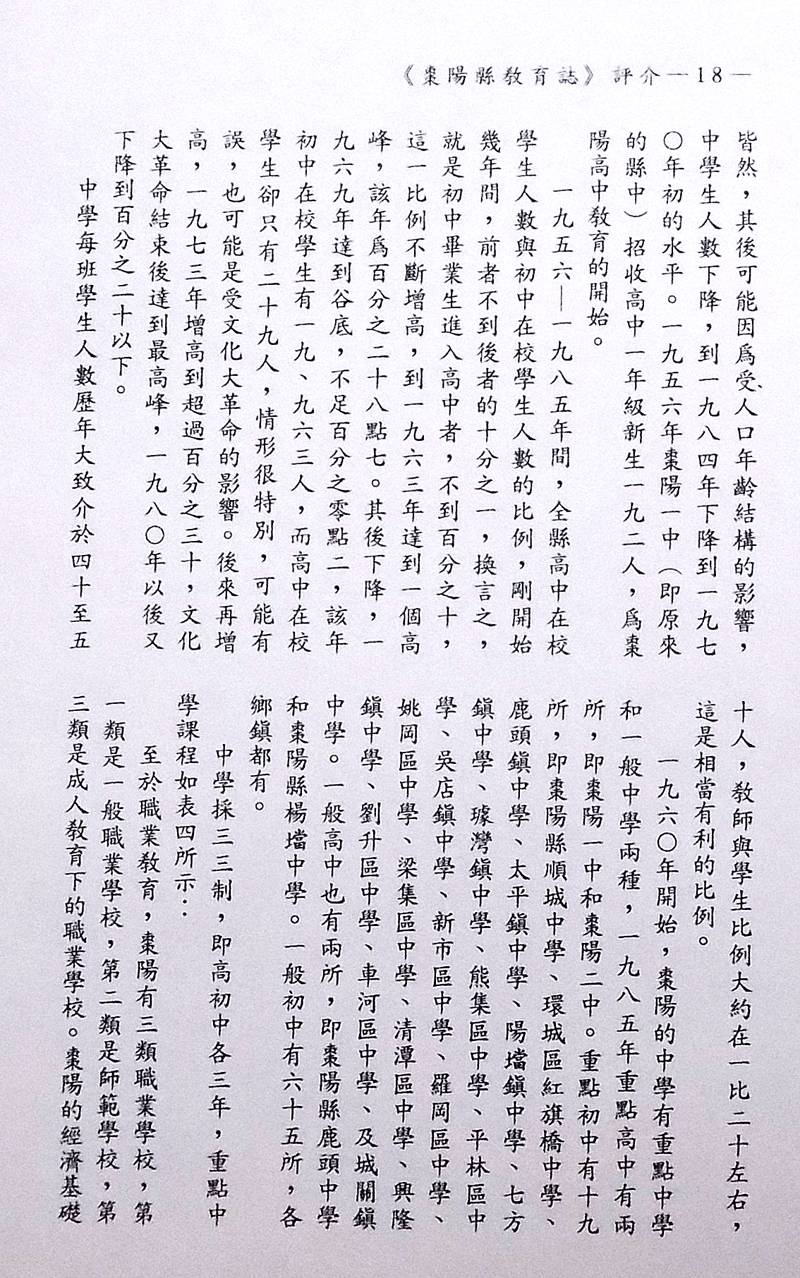 《棗陽縣教育誌》評介—18—
皆然，其後可能因爲受、人口年齡結構的影響，
中學生人數下降，到一九八四年下降到一九七
〇年初的水平。一九五六年棗陽一中（即原來
的縣中）招收高中一年級新生一九二人，爲棗
陽高中教育的開始。
一九五六—一九八五年間，全縣高中在校
學生人數與初中在校學生人數的比例，剛開始
幾年間，前者不到後者的十分之一，換言之，
就是初中畢業生進入高中者，不到百分之十，
這一比例不斷增高，到一九六三年達到一個高
峰，該年爲百分之二十八點七。其後下降，一
九六九年達到谷底，不足百分之零點二，該年
初中在校學生有一九、九六三人，而高中在校
學生卻只有二十九人，情形很特別，可能有
誤，也可能是受文化大革命的影響。後來再增
高，一九七三年增高到超過百分之三十，文化
大革命結束後達到最高峰，一九八〇年以後又
下降到百分之二十以下。
中學每班學生人數歷年大致介於四十至五
十人，教師與學生比例大約在一比二十左右，
這是相當有利的比例。
一九六〇年開始，棗陽的中學有重點中學
和一般中學兩種，一九八五年重點高中有兩
所，即棗陽一中和棗陽二中。重點初中有十九
所，即棗陽縣順城中學、環城區紅旗橋中學、
鹿頭鎮中學、太平鎮中學、陽壋鎮中學、七方
鎮中學、璩灣鎮中學、熊集區中學、平林區中
學、吳店鎮中學、新市區中學、羅岡區中學、
姚岡區中學、梁集區中學、清潭區中學、興隆
鎮中學、劉升區中學、車河區中學、及城關鎮
中學。一般高中也有兩所，即棗陽縣鹿頭中學
和棗陽縣楊壋中學。一般初中有六十五所，各
鄉鎮都有。
中學採三三制，即高初中各三年，重點中
學課程如表四所示：
至於職業教育，棗陽有三類職業學校，第
一類是一般職業學校，第二類是師範學校，第
三類是成人教育下的職業學校。棗陽的經濟基礎